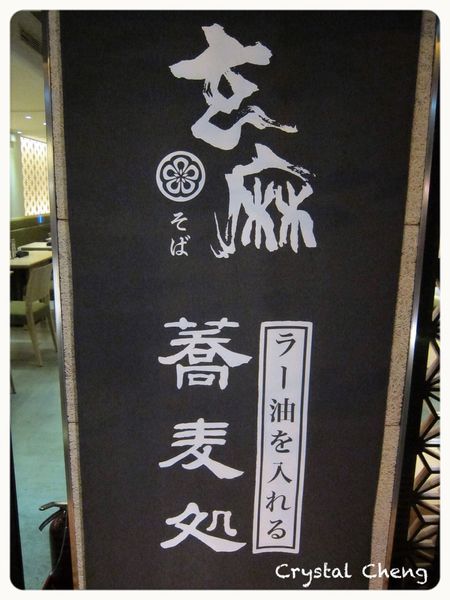 玄麻
そば
ラー油を入れる
蕎麦処
Crystal Cheng